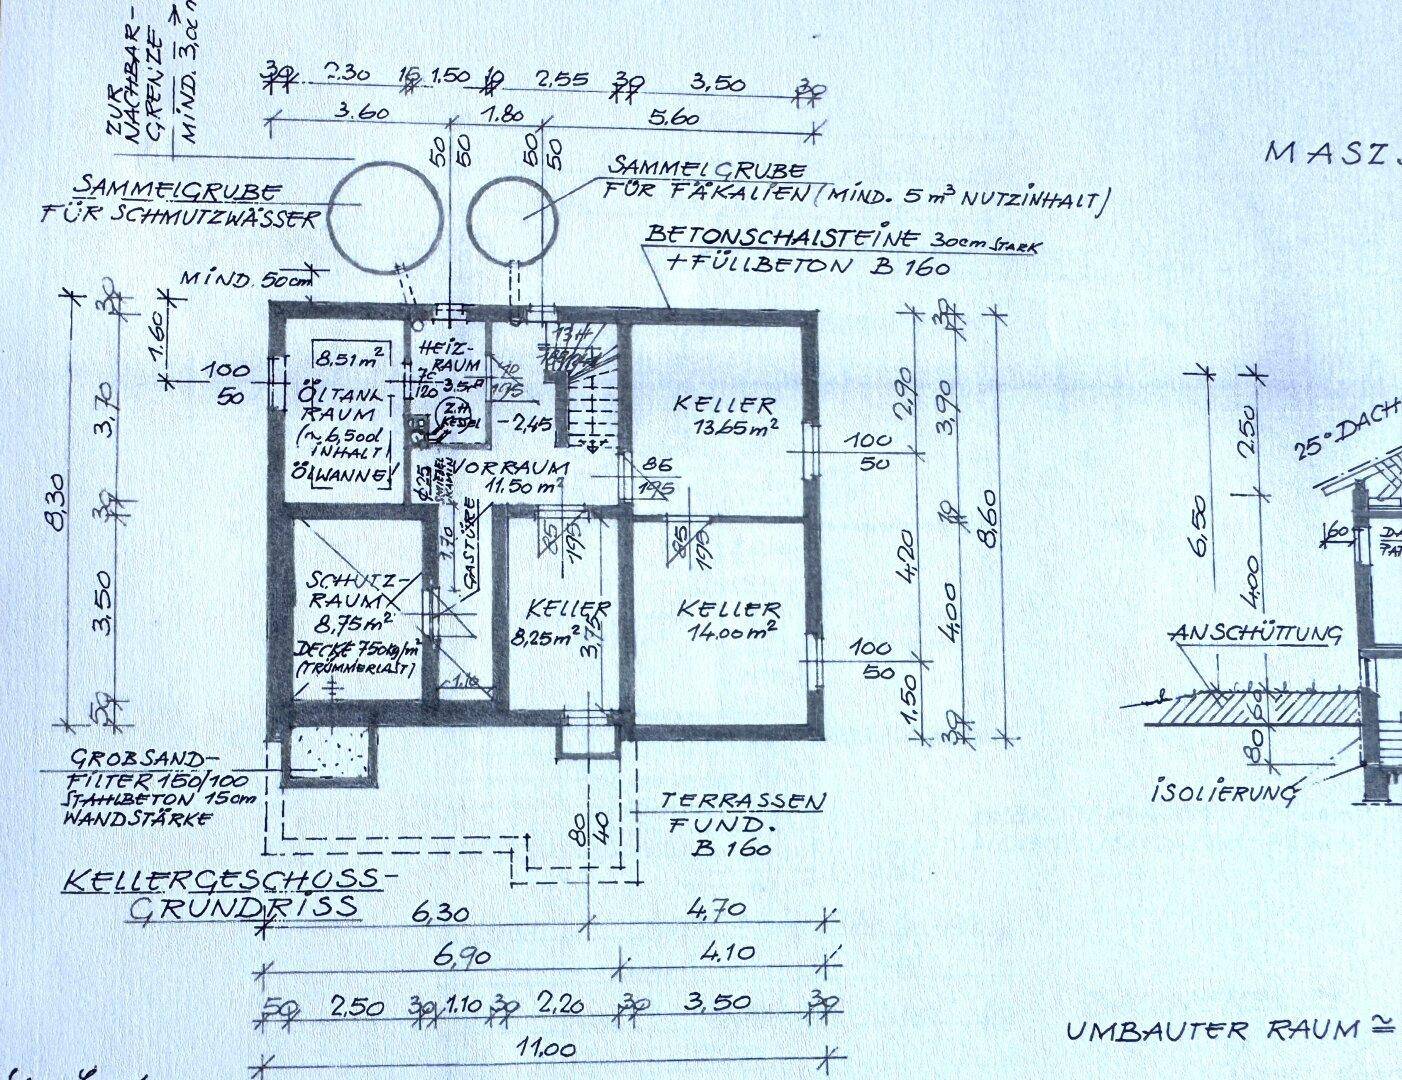 ZUR
NACHBAR-
GRENZE
MIND. 3,00 m
30 2.30 15 1.50 10 2,55 30 3,50 30
3.60 1.80 5.60
50 50 50 50
SAMMELGRUBE
FÜR SCHMUTZWÄSSER
SAMMELGRUBE
FÜR FÄKALIEN (MIND. 5 m³ NUTZINHALT)
BETONSCHALSTEINE 30cm STARK
+ FÜLLBETON B 160
MASZ
MIND. 50cm
30
1.60
3,70
8,30
30
3,50
50
100
50
8,51 m²
ÖLTANK
RAUM
(~6,500l
INHALT)
ÖLWANNE
HEIZ-
RAUM
3.5m²
70
120
Z.H
KESSEL
195
13H
-2,45
VORRAUM
11.50 m²
KELLER
13.65 m²
85
195
100
50
2,90
30
3,90
10
8,60
4,20
4,00
1.50
30
100
50
1,70
GASTÜRE
SCHUTZ-
RAUM
8,75 m²
DECKE 750kg/m²
(TRÜMMERLAST)
1,10
85
195
KELLER
8,25 m²
3,75
85
195
KELLER
14.00 m²
GROBSAND-
FILTER 150/100
STAHLBETON 15cm
WANDSTÄRKE
TERRASSEN
FUND.
B 160
80
40
KELLERGESCHOSS-
GRUNDRISS
6,30 4.70
6,90 4.10
50 2,50 30 1.10 30 2,20 30 3,50 30
11.00
25° DACH
2.50
6,50
4,00
60
ANSCHÜTTUNG
60
80
ISOLIERUNG
UMBAUTER RAUM ≅